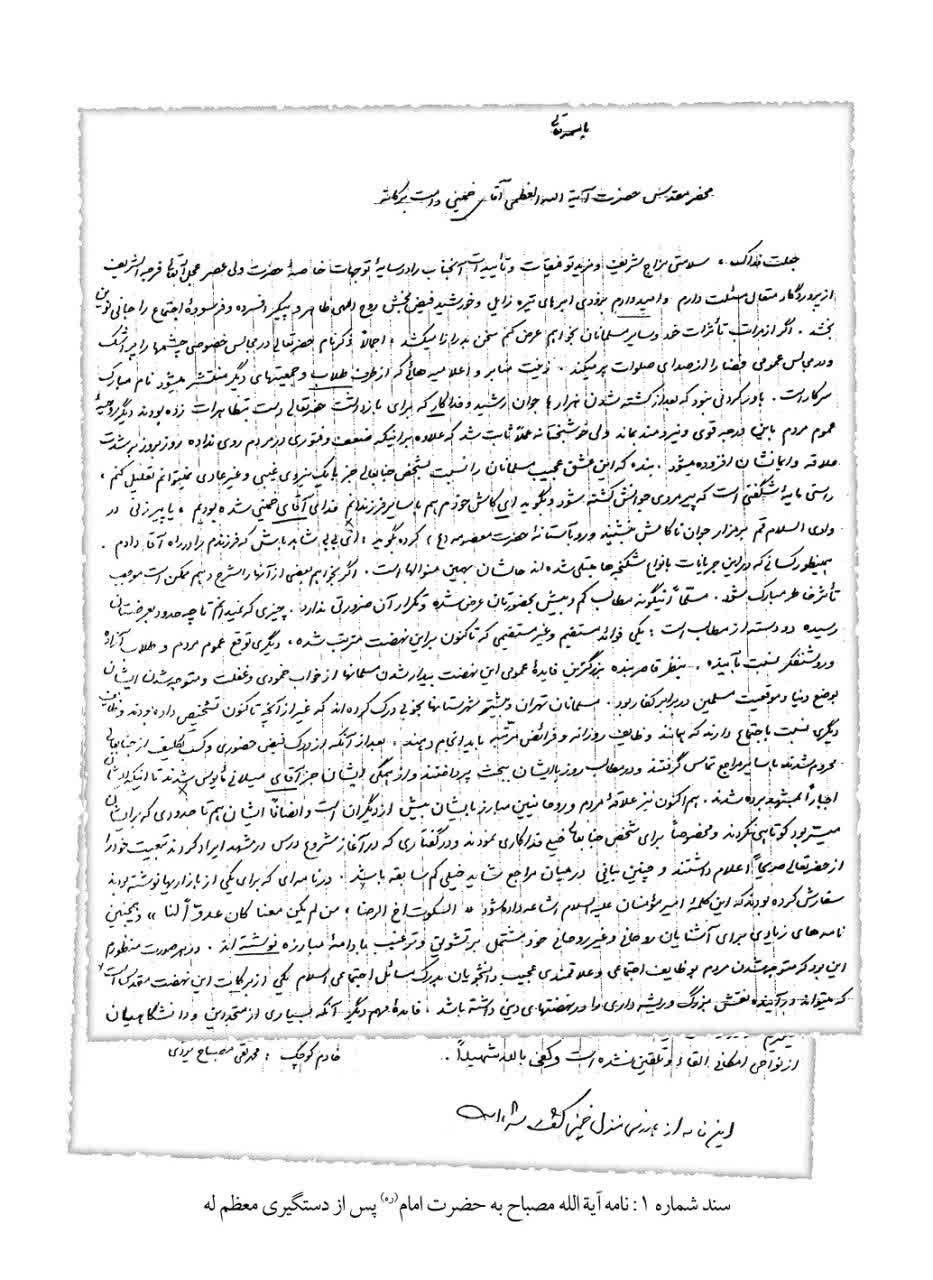 باسمه تعالی
محضر مقدس حضرت آیة الله العظمی آقای خمینی دامت برکاته
جعلت فداک ، سلامتی مزاج شریف و مزید توفیقات و تأییدات آنجناب را در سایهٔ توجهات خاصهٔ حضرت ولی عصر عجل الله تعالی فرجه الشریف
از پروردگار متعال مسئلت دارم و امیدوارم بزودی ابرهای تیره زایل و خورشید فیض بخش روح اللهی ظاهر و پیکر افسرده و فرسودهٔ اجتماع را جانی نوین
بخشد . اگر از مراتب تأثرات خود و سایر مسلمانان بخواهم عرض کنم سخن بدرازا میکشد ، اجمالاً ذکر نام حضرتعالی در مجالس خصوصی چشمها را پر اشک
و در مجالس عمومی فضا را از صدای صلوات پر میکند . زینت منابر و اعلامیه هائی که از طرف طلاب و جمعیتهای دیگر منتشر میشود نام مبارک
سرکار است . باور کردنی نبود که بعد از کشته شدن هزارها جوان رشید و فداکار که برای بازداشت حضرتعالی دست بتظاهرات زده بودند دیگر روحیهٔ
عموم مردم باین درجه قوی و نیرومند بماند ولی خوشبختانه عملاً ثابت شد که علاوه بر اینکه ضعف و فتوری در مردم روی نداده روز بروز بر شدت
علاقه و ایمانشان افزوده میشود . بنده که این عشق عجیب مسلمانان را نسبت بشخص جنابعالی جز با یک نیروی غیبی و غیر عادی نمیتوانم تعلیل کنم ،
راستی مایهٔ شگفتی است که پیرمردی جوانش کشته شود و بگوید ای کاش خودم هم با سایر فرزندانم فدای آقای خمینی شده بودیم ، یا پیرزنی در
وادی السلام قم بر مزار جوان ناکامش بنشیند و رو بآستانهٔ حضرت معصومه (ع) کرده بگوید : بی بی شاهد باش که فرزندم را در راه آقا دادم .
بهمینطور کسانی که در این جریانات بانواع شکنجه ها مبتلی شده اند حالشان بهمین منوالها است . اگر بخواهم بعضی از آنها را شرح دهم ممکن است موجب
تأثر خاطر مبارک شود . مسلماً اینگونه مطالب کم و بیش بحضورتان عرض شده و تکرار آن ضرورتی ندارد . چیزی که نمیدانم تا چه حدود بعرضتان
رسیده دو دسته از مطالب است : یکی فوائد مستقیم و غیر مستقیمی که تا کنون بر این نهضت مترتب شده ، دیگری توقع عموم مردم و طلاب آزاده
و روشنفکر نسبت بآینده . بنظر قاصر بنده بزرگترین فایدهٔ عمومی این نهضت بیدار شدن مسلمانها از خواب خمودی و غفلت و متوجه شدن ایشان
بوضع دنیا و موقعیت مسلمین در برابر کفار بود . مسلمانان تهران و بیشتر شهرستانها بخوبی درک کرده اند که غیر از آنچه تا کنون تشخیص داده بودند وظایف
دیگری نسبت باجتماع دارند که مانند وظایف روزانه و فرائض مرتبه باید انجام دهند ، بعد از آنکه از درک فیض حضوری و کسب تکلیف از جنابعالی
محروم شدند با سایر مراجع تماس گرفتند و در مطالب روز با ایشان ببحث پرداختند و از همگی ایشان جز آقای میلانی مأیوس شدند تا اینکه ایشان
اجباراً بمشهد برده شدند . هم اکنون نیز علاقهٔ مردم و روحانیین مبارز بایشان بیش از دیگران است و انصافاً ایشان هم تا حدودی که برایشان
میسر بود کوتاهی نکردند و مخصوصاً برای شخص جنابعالی خیلی فداکاری نمودند و در گفتاری که در آغاز شروع درس در مشهد ایراد کردند تبعیت خود را
از حضرتعالی صریحاً اعلام داشتند و چنین بیانی در میان مراجع شاید خیلی کم سابقه باشد . در نامه ای که برای یکی از بازاریها نوشته بودند
سفارش کرده بودند که این کلمهٔ امیر مؤمنان علیه السلام اشاعه داده شود « السکوت اخ الرضا ، من لم یکن معنا کان عدواً لنا » و همچنین
نامه های زیادی برای آشنایان روحانی و غیر روحانی خود مشتمل بر تشویق و ترغیب بادامهٔ مبارزه نوشته اند . در هر صورت منظورم
این بود که متوجه شدن مردم بوظایف اجتماعی و علاقمندی عجیب دانشجویان بدرک مسائل اجتماعی اسلام یکی از برکات این نهضت مقدس است
که میتواند در آینده نقش بزرگ و ریشه داری را در نهضتهای دینی داشته باشد ، فایدهٔ مهم دیگر آنکه بسیاری از متجددین و دانشگاهیان
از نواحی امکانی القاء و تلقین نشده است و کفی بالله شهیداً . خادم کوچک : محمد تقی مصباح یزدی
این نامه از بازرسی منزل خمینی کشف شده است
سند شماره ۱: نامه آیة الله مصباح به حضرت امام(ره) پس از دستگیری معظم له